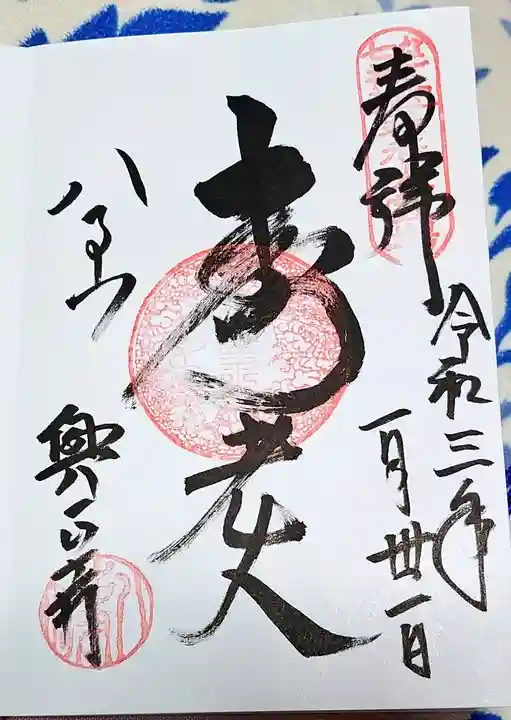 奉拝
令和三年
一月卅一日
寿老人
八事山
興正寺